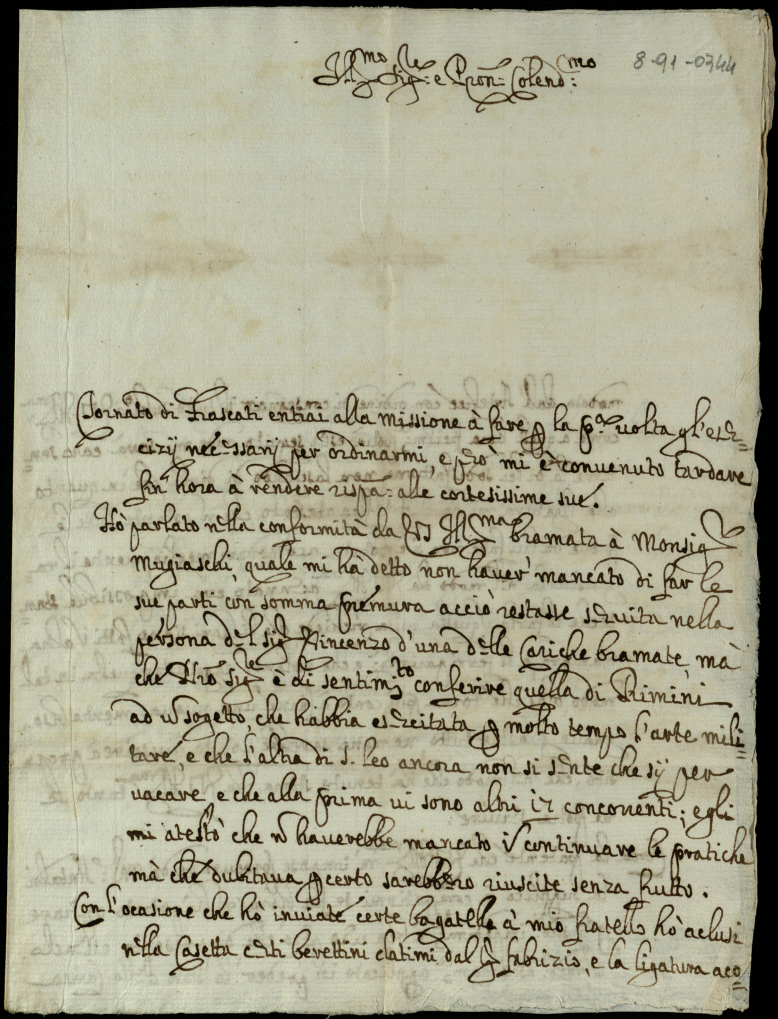 8-91-0344
Ill.mo Sig.re e Pron: Colend:mo
Tornato di Frascati entrai alla missione à fare p la p.a uolta gl'eser=
cizij necessarij per ordinarmi, e però mi è conuenuto tardare
fin' hora à rendere rispa: alle cortesissime sue.
Hò parlato nella conformità da VS Ill.ma bramata à Monsig.r
Mugiaschi, quale mi hà detto non hauer' mancato di far le
sue parti con somma premura acciò restasse seruita nella
persona del sig.r Vincenzo d'una delle Cariche bramate, mà
che Nro Sig.re è di sentim.to conferire quella di Rimini
ad un sogetto, che habbia esercitata p molto tempo l'arte mili=
tare, e che l'altra di S. Leo ancora non si sente che sij per
uacare, e che alla prima ui sono altri 12 concorrenti; egli
mi atestò che n hauerebbe mancato continuare le pratiche
mà che dubitaua p certo sarebbero riuscite senza frutto.
Con l'ocasione che hò inuiate certe bagatelle à mio fratello hò aclusi
nella Casetta certi berettini datimi dal S.r fabrizio, e la ligatura aco=